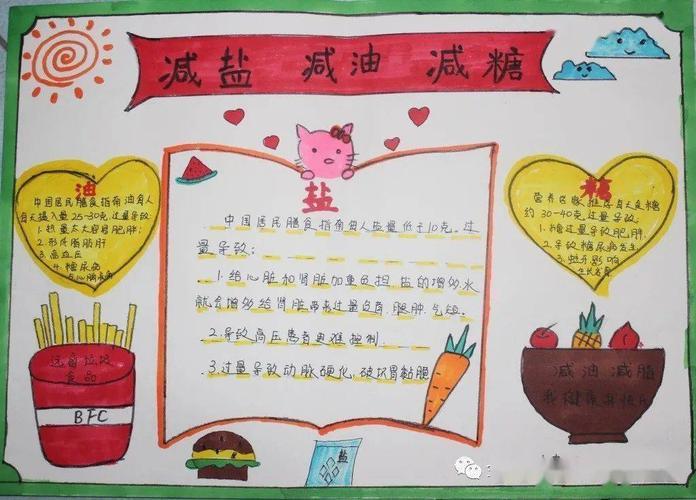 减盐 减油 减糖
油
中国居民膳食指南油每人
每天摄入量25-30克,过量导致:
1.热量太大容易肥胖;
2.形成脂肪肝
3.高血压
4.糖尿病
盐
中国居民膳食指南每人盐量低于10克。过
量导致:
1.给心脏和肾脏加重负担,盐的增多,水
就会增多给肾脏带来过量负荷,腿肿、气短。
2.导致高压患者更难控制
3.过量导致动脉硬化,破坏胃粘膜
糖
营养
推荐每天食糖
约30-40克,过量导致:
1.糖过量导致肥胖.
2.导致糖尿病发生
3.蛀牙影响
生长发育
远离垃圾
食品
BFC
盐
减油减脂
我健康我快乐